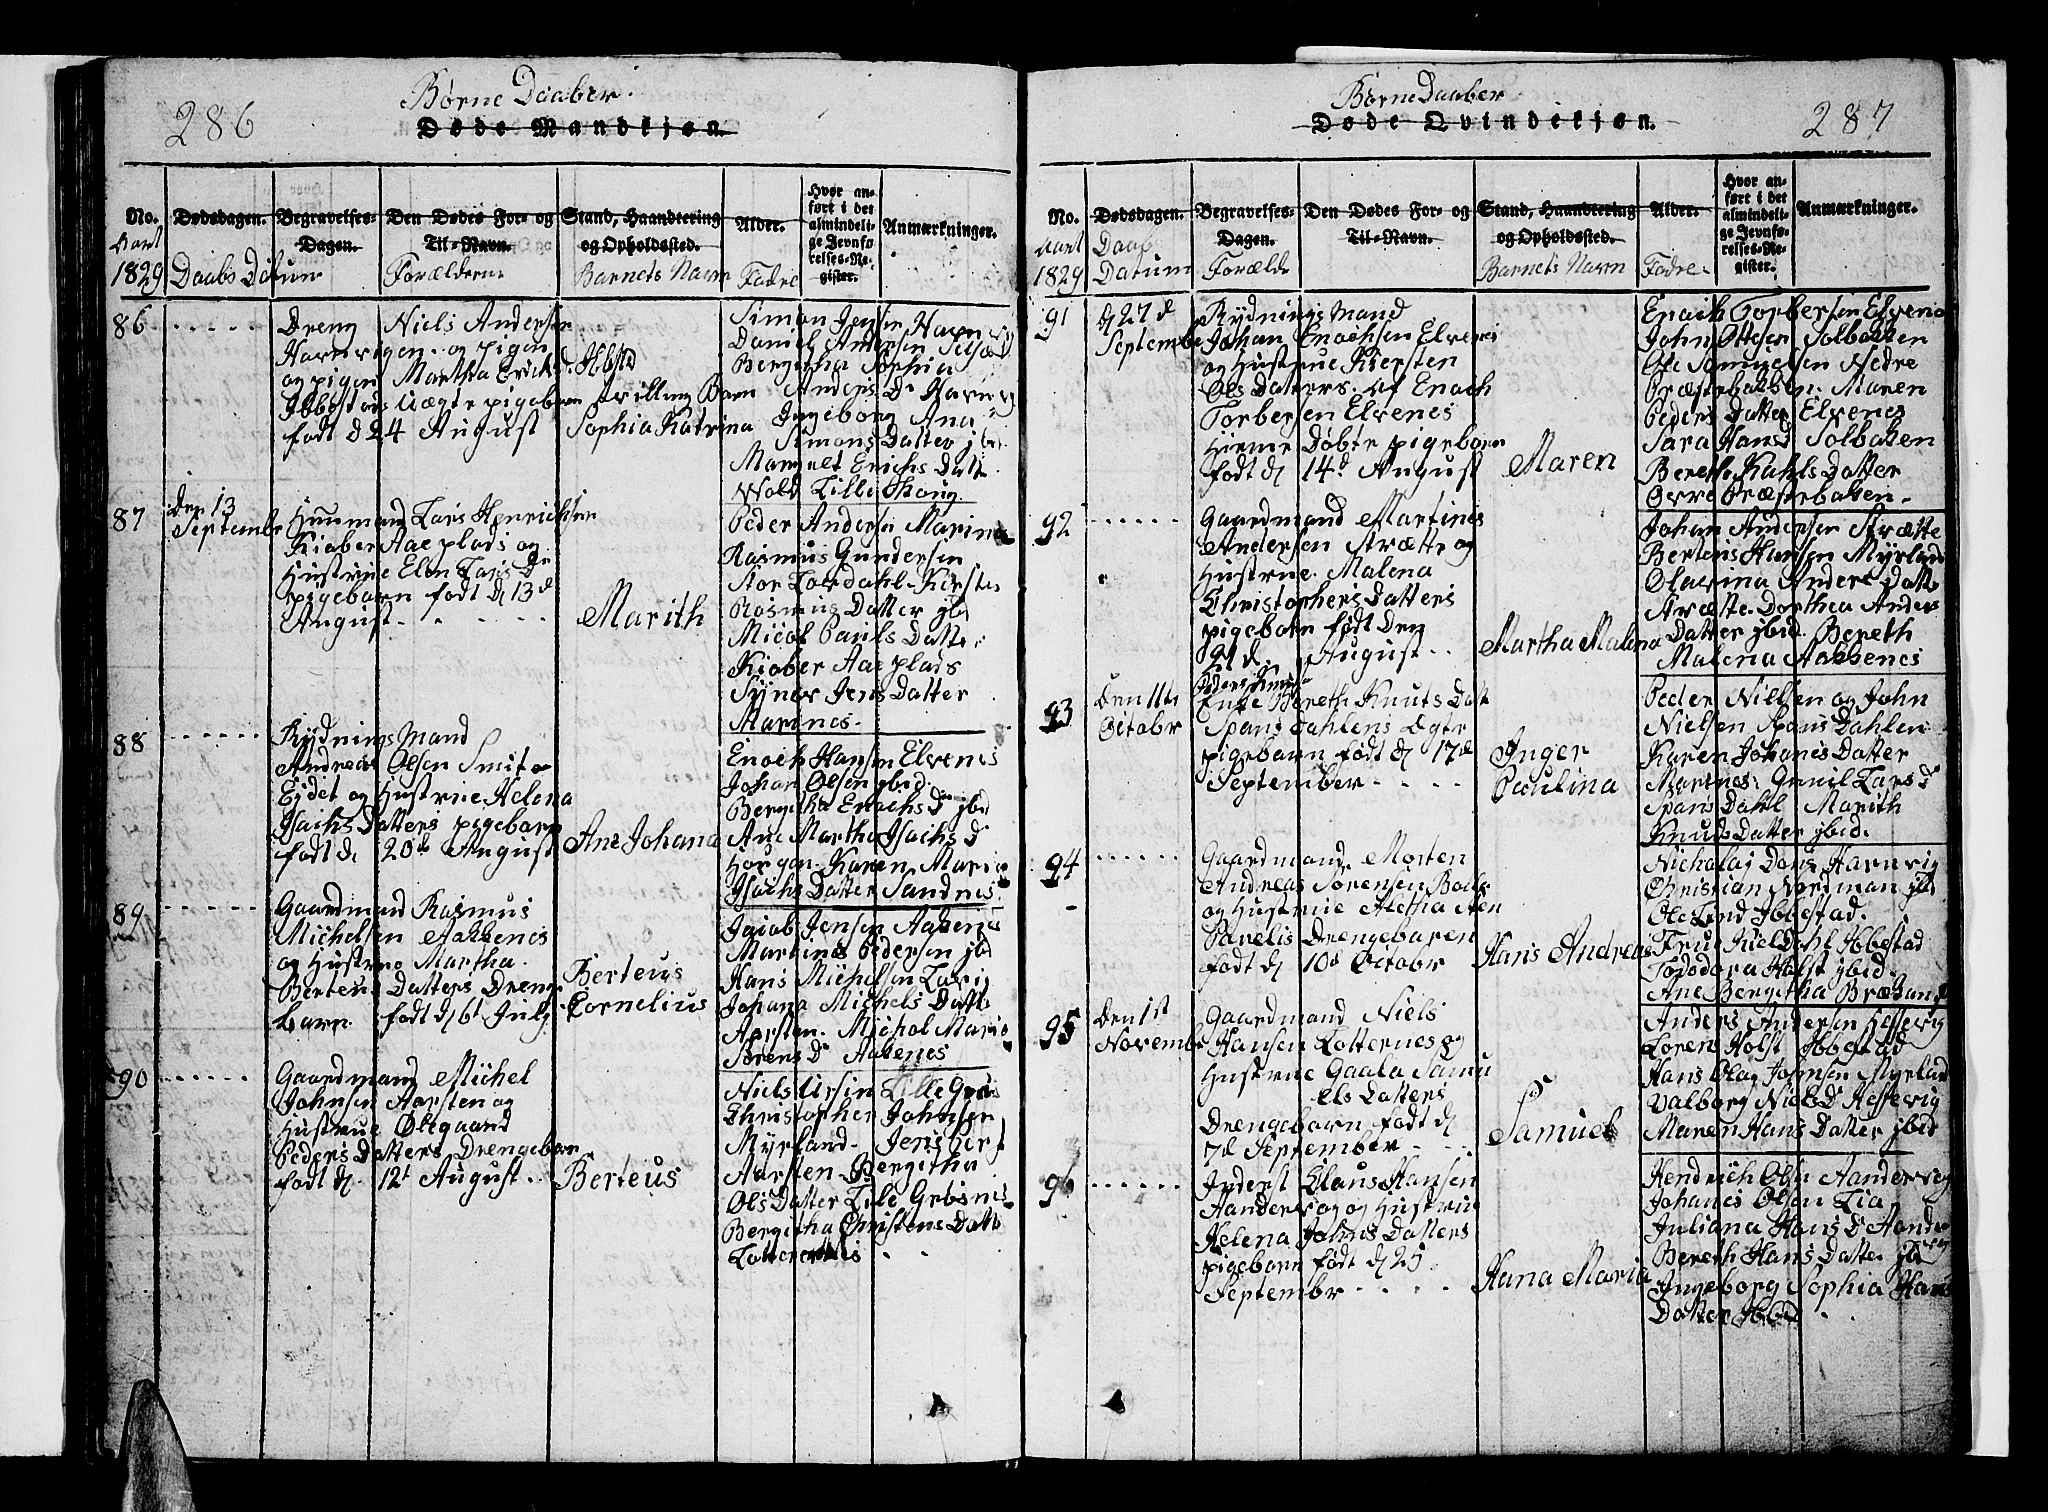 286
Børne Daaber.
Døde Mandkjøn.
No.
Aaret
1829
Dødsdagen.
Daabs Datum
Begravelses-
Dagen.
Den Dødes For- og
Til-Navn.
Forældern.
Stand, Haandtering
og Opholdssted.
Barnets Navn
Alder.
Fadre
Hvor an-
ført i det
almindeli-
ge Jevnfø-
relses-Re-
gister.
Anmærkninger.
86
Dreng Niels Andersen
Havnvigen og pigen
og pigen Martha Erichs d. Ibstd
Ibbestads Uægte pigebarn tvilling Barn
født d 24 August
Sophia Katrina
Simon Jensen Havn
Daniel Andersen
Bergitha Sophia
Anders D Havnvig
Ingeborg Ana
Simons Datter jbd.
Margret Erichs Datt
Wold Lille
87
Den 13
Septembr
Huusmand Lars Henrichsen
Kiober Aae plads og
Hustrue Elen Lars Dr
pigebarn født d 13d
August
Marith
Peder Andersen Marines
Rasmus Gundersen
Stor Lordahl Kirste
Rasmus Datter jbd
Micol Pauls Datte
Kiober Aae plads
Synov Jens Datter
Marenes.
88
Rydnings Mand
Andreas Olsen Smite
Ejdet og Hustrue Helena
Isachs Datters pigebarn
født d. 20de August
Ane Johana
Enoch Hansen Elvenes
Johan Olsen jbid.
Bergitha Enochs D jbid
Ane Martha Isachs D
Horgen. Karen Maria
Isachs Datter Sandnes
89
Gaardmand Rasmus
Michelsen Aakkenes
og Hustrue Martha
Berteus Datters Drenge
barn født d 6t July
Berteus
Cornelius
Jacob Jensen Aakenes
Martinus Pedersen jbd
Hans Michelsen
Johana Michels Datte
Aarsten. Michol Maria
Sørens D Aakenes
90
Gaardmand Michel
Johnsen Aarsten og
Hustrue Olegaard
Peders Datters Drengebarn
født d. 12t August
Berteus
Niels Ursin Lille
Christopher Johnsen
Myrland. Jens
Aarsten Bergitha
Ols Datter Lille
Bergitha Christens Datt
287
Børne Daaber
Døde Qvindekjøn.
No.
Aaret
1829
Dødsdagen.
Daab
Datum
Begravelses-
Dagen.
Forælde
Den Dødes For- og
Til-Navn.
Stand, Haandtering
og Opholdssted.
Barnets Navn
Alder.
Fadre.
Hvor an-
ført i det
almindeli-
ge Jevnfø-
relses-Re-
gister.
Anmærkninger.
91
d 27d
Septembe
Rydnings Mand
Johan Enochsen Elvenes
og Hustrue Kiersten
Ols Datters. af Enoch
Torbersen Elvenes
Hieme Døbte pigebarn
født d 14d August
Maren
Enoch Torbersen Elvenes
John Ottesen Solbakken
Ole Samuelsen Nedre
Præstebakken. Maren
Peders Datter Elvenes
Sara Hans D Solbaken
Berethe Kahls Datter
Øvre Præstebaken.
92
Gaardmand Martines
Andersen Strætte og
Hustrue Malena
Christophers Datters
pigebarn født den
21d. August
Martha Malena
Johan Andersen Strætte
Bertens Hansen Myrland
Olavrina Anders Datte
Strætte. Dorthea Anders
Datter jbid. Bereth
Malena Aakkenes
93
Den 11te
October
Enke Bereth Knuts Datt
Spans Dahlens Ægte
pigebarn født d 17de
September
Inger
Paulina
Peder Nielsen og John
Nielsen Spans Dahlen
Karen Johanes Datter
Marenes. Gunil Lars D
Spans Dahl Marith
Knuds Datter jbid.
94
Gaardmand Morten
Andreas Sørensen
og Hustrue Alethа
Parelis Drengebaren
født d 10d Octobr
Hans Andreas
Nicholaj Dons Havnvig
Christian Nordman jbd
Ole Lind Ibbestad.
Frue Kieldahl Ibbestad
Todsdora Holst jbid.
Ane Bergitha
95
Den 1st
Novembe
Gaardmand Niels
Hansen Lotternes og
Hustrue Gaala Samu
els Datters
Drengebarn født d
7d September
Samuel
Anders Andersen Hessevig
Loren Holst Ibbestad
Hans Olaj Johnsen Myrland
Valborg Niels D Hessevig
Maren Hans Datter jbid
96
Inderst Claus Hansen
Aandervag og Hustrue
Helena Johns Datters
pigebarn født d 25
Septembr
Hana Maria
Hendrich Olsn Aandervag
Johanes Olsen Lia
Juliana Hans D Aander
vag
Bereth Hans Datte jbd
Ingeborg Sophia Hans
Datter Ibbid